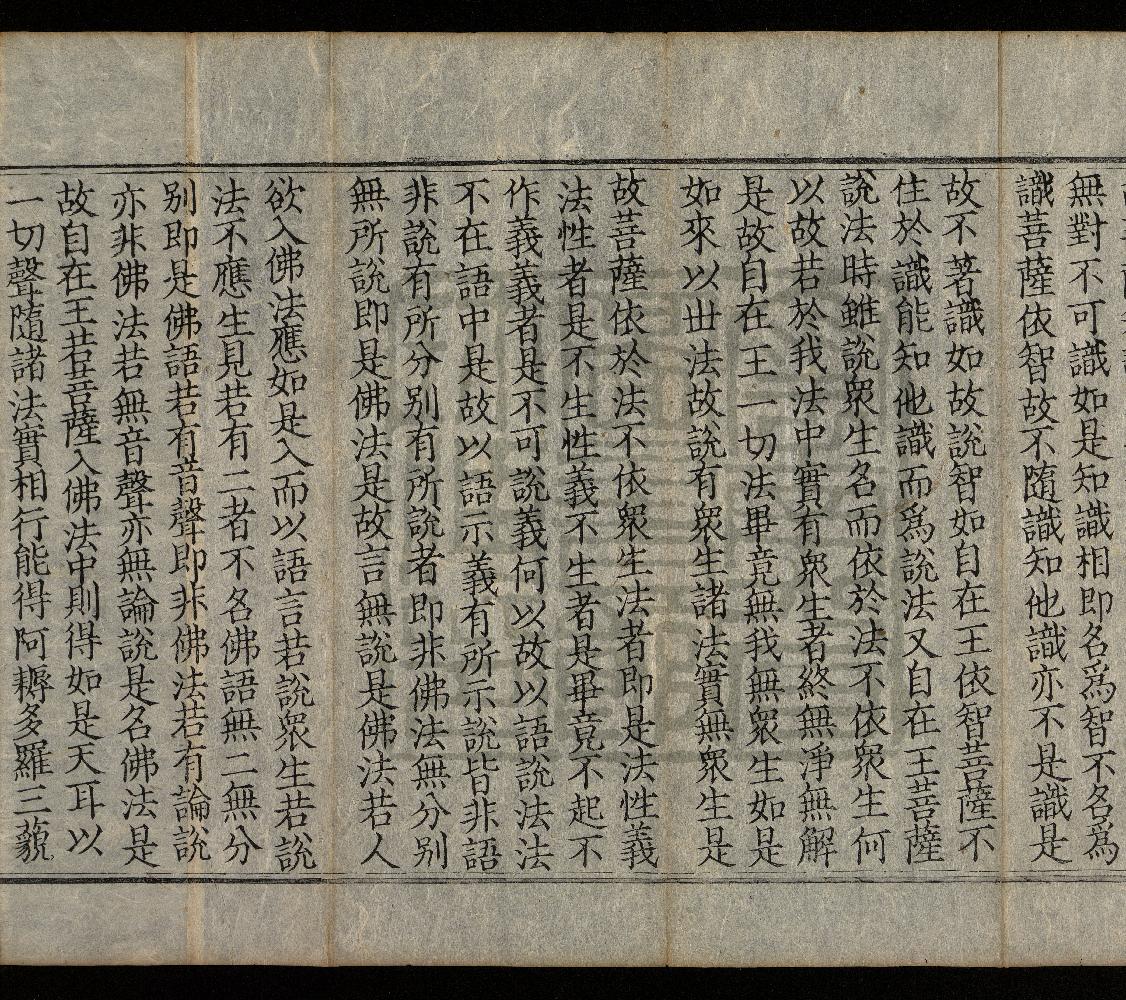 無對不可識如是知識相即名爲智不名爲
識菩薩依智故不隨識知他識亦不是識是
故不著識如故說智如自在王依智菩薩不
住於識能知他識而爲說法又自在王菩薩
說法時雖說衆生名而依於法不依衆生何
以故若於我法中實有衆生者終無淨無解
是故自在王一切法畢竟無我無衆生如是
如來以世法故說有衆生諸法實無衆生是
故菩薩依於法不依衆生法者即是法性義
法性者是不生性義不生者是畢竟不起不
作義義者是不可說義何以故以語說法法
不在語中是故以語示義有所示說皆非語
非說有所分別有所說者即非佛法無分別
無所說即是佛法是故言無說是佛法若人
欲入佛法應如是入而以語言若說衆生若說
法不應生見若有二者不名佛語無二無分
別即是佛語若有音聲即非佛法若有論說
亦非佛法若無音聲亦無論說是名佛法是
故自在王若菩薩入佛法中則得如是天耳以
一切聲隨諸法實相行能得阿耨多羅三藐